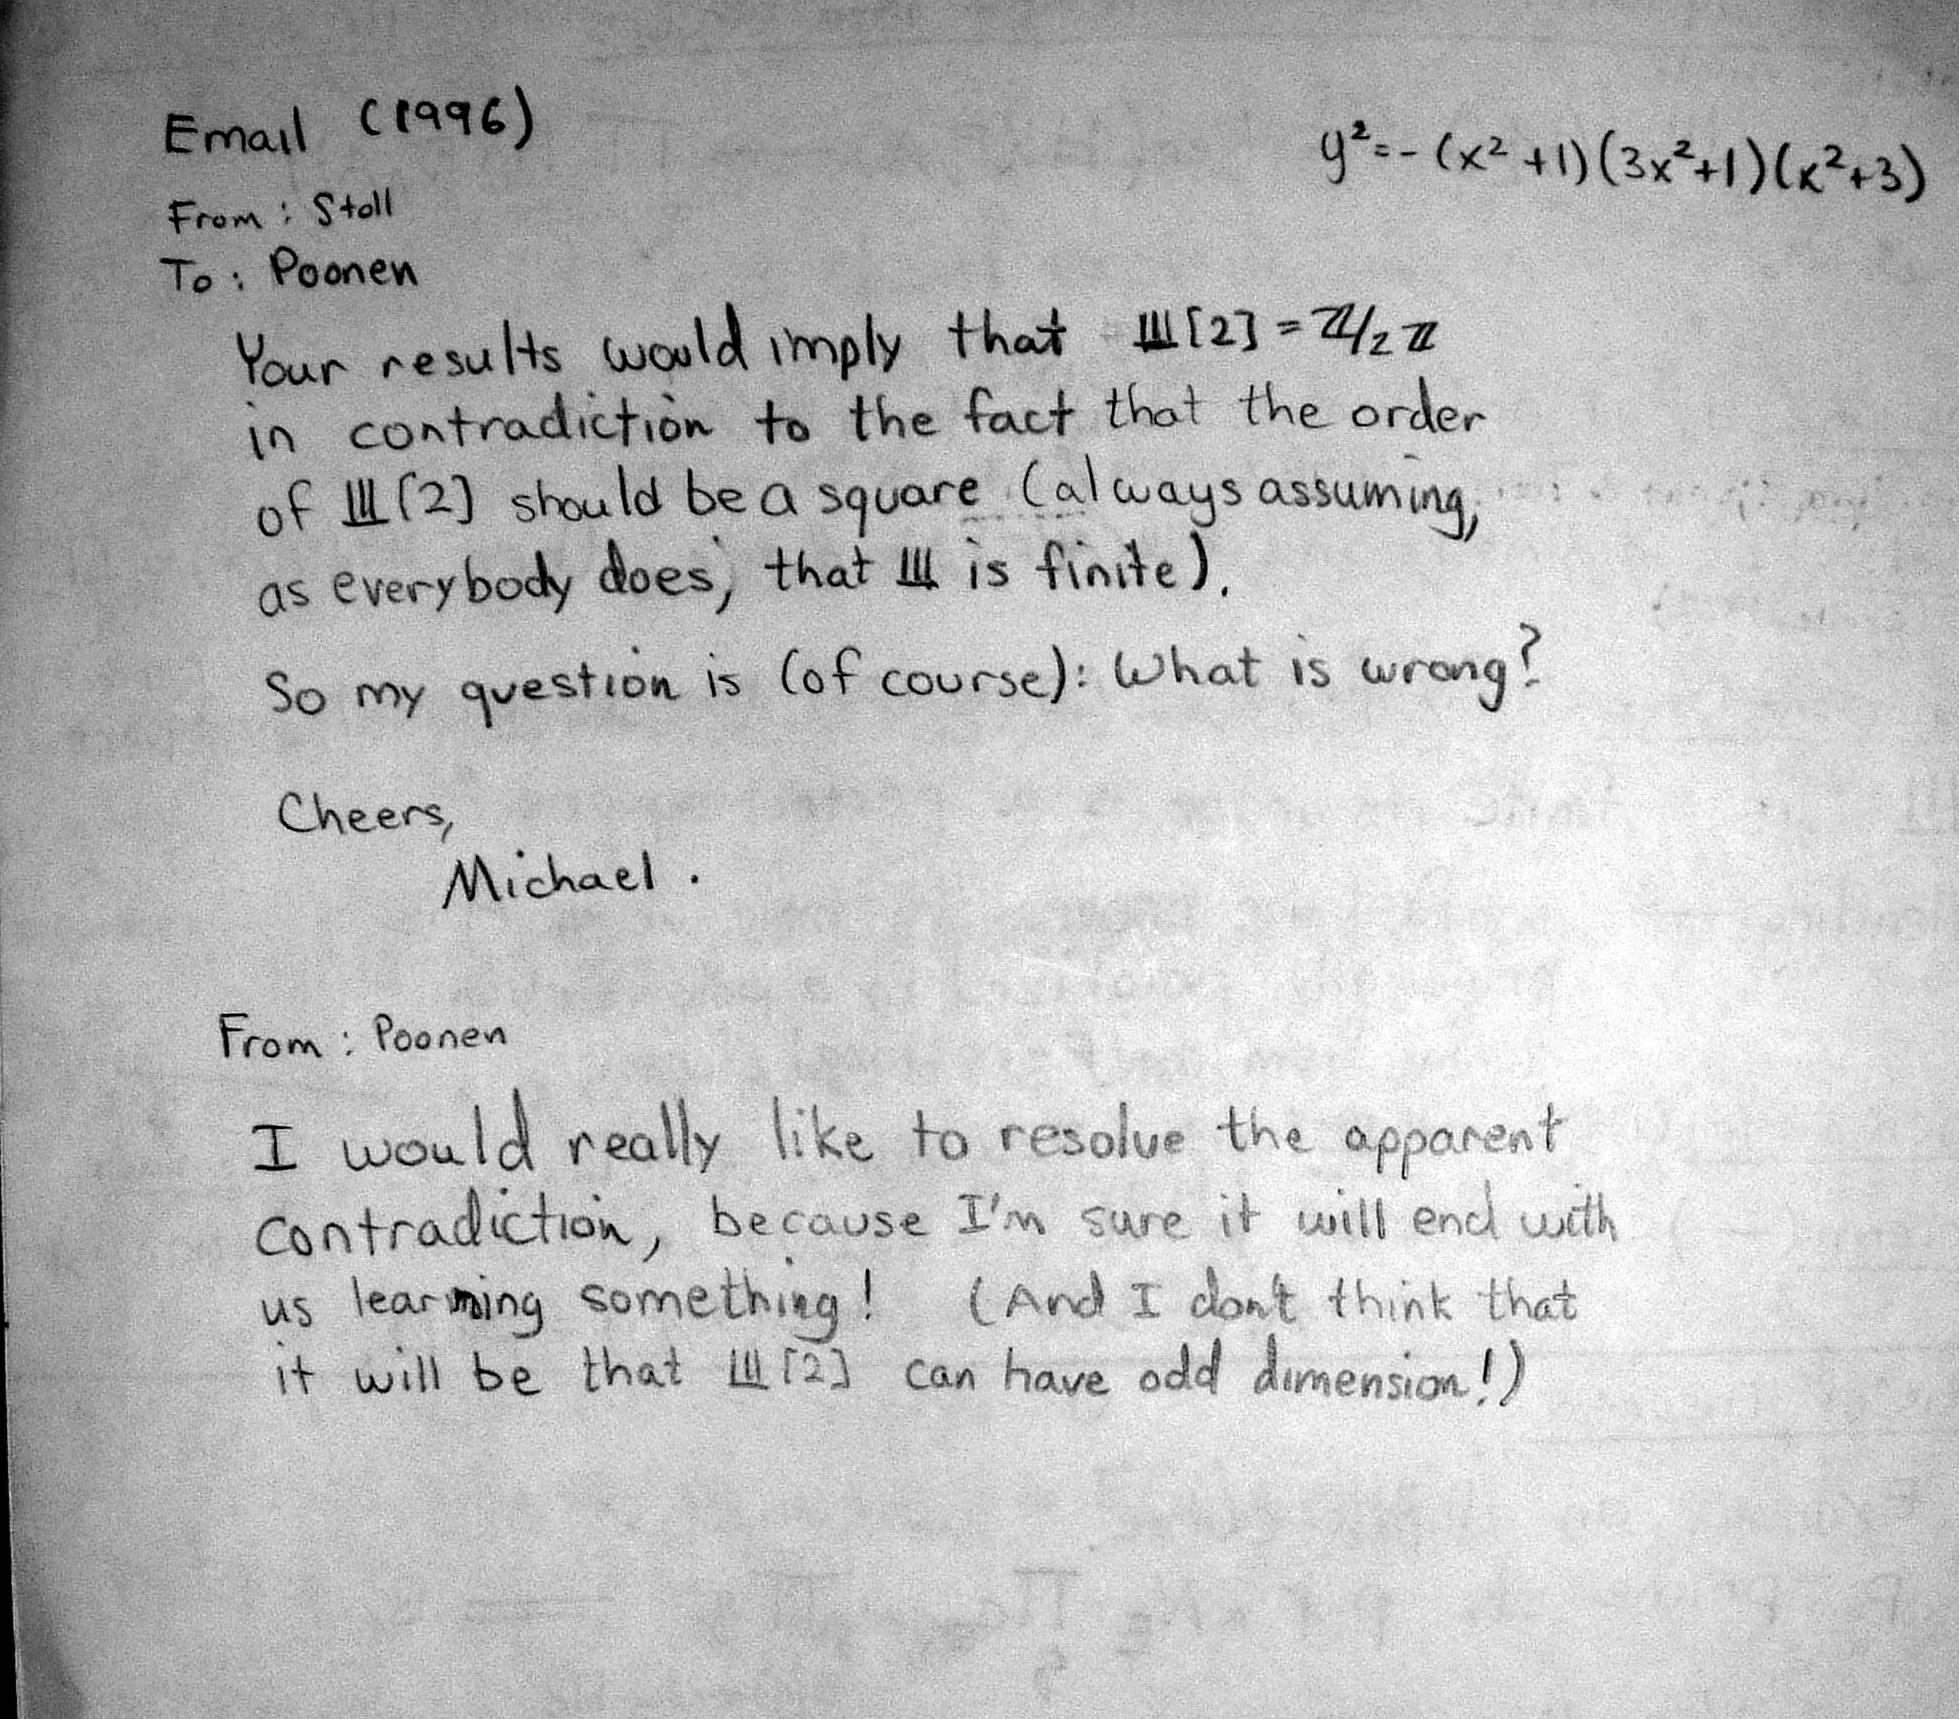 Email (1996)
y² = - (x² + 1)(3x² + 1)(x² + 3)
From : Stoll
To : Poonen
Your results would imply that Ш[2] = ℤ/2ℤ
in contradiction to the fact that the order
of Ш[2] should be a square (always assuming,
as everybody does, that Ш is finite).
So my question is (of course): What is wrong?
Cheers,
Michael.
From : Poonen
I would really like to resolve the apparent
contradiction, because I'm sure it will end with
us learning something! (And I don't think that
it will be that Ш[2] can have odd dimension!)